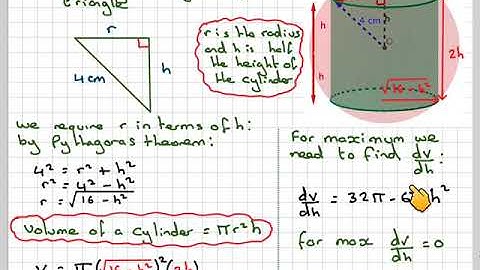 triangle
r
h
4 cm
r is the radius
and h is half
the height of
the cylinder
h
h
4 cm
2h
√16 - h²
we require r in terms of h:
by Pythagoras theorem:
4² = r² + h²
r² = 4² - h²
r = √16 - h²
volume of a cylinder = πr²h
v = π(√16 - h²)²(2h)
For maximum we
need to find dv/dh:
dv/dh = 32π - 6 h²
for max dv/dh = 0